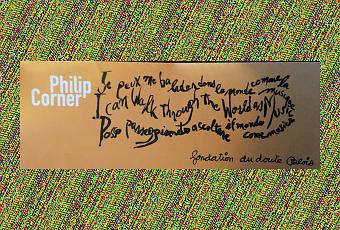 Philip
Corner
Je peux me balader dans le monde comme la musique
I can Walk Through the World as Music
Posso passeggiando ascoltare il mondo come musica
fondation du doute Blois